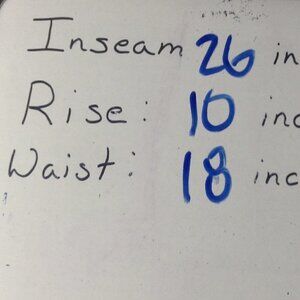 Inseam 26 in
Rise: 10 inc
Waist: 18 inc